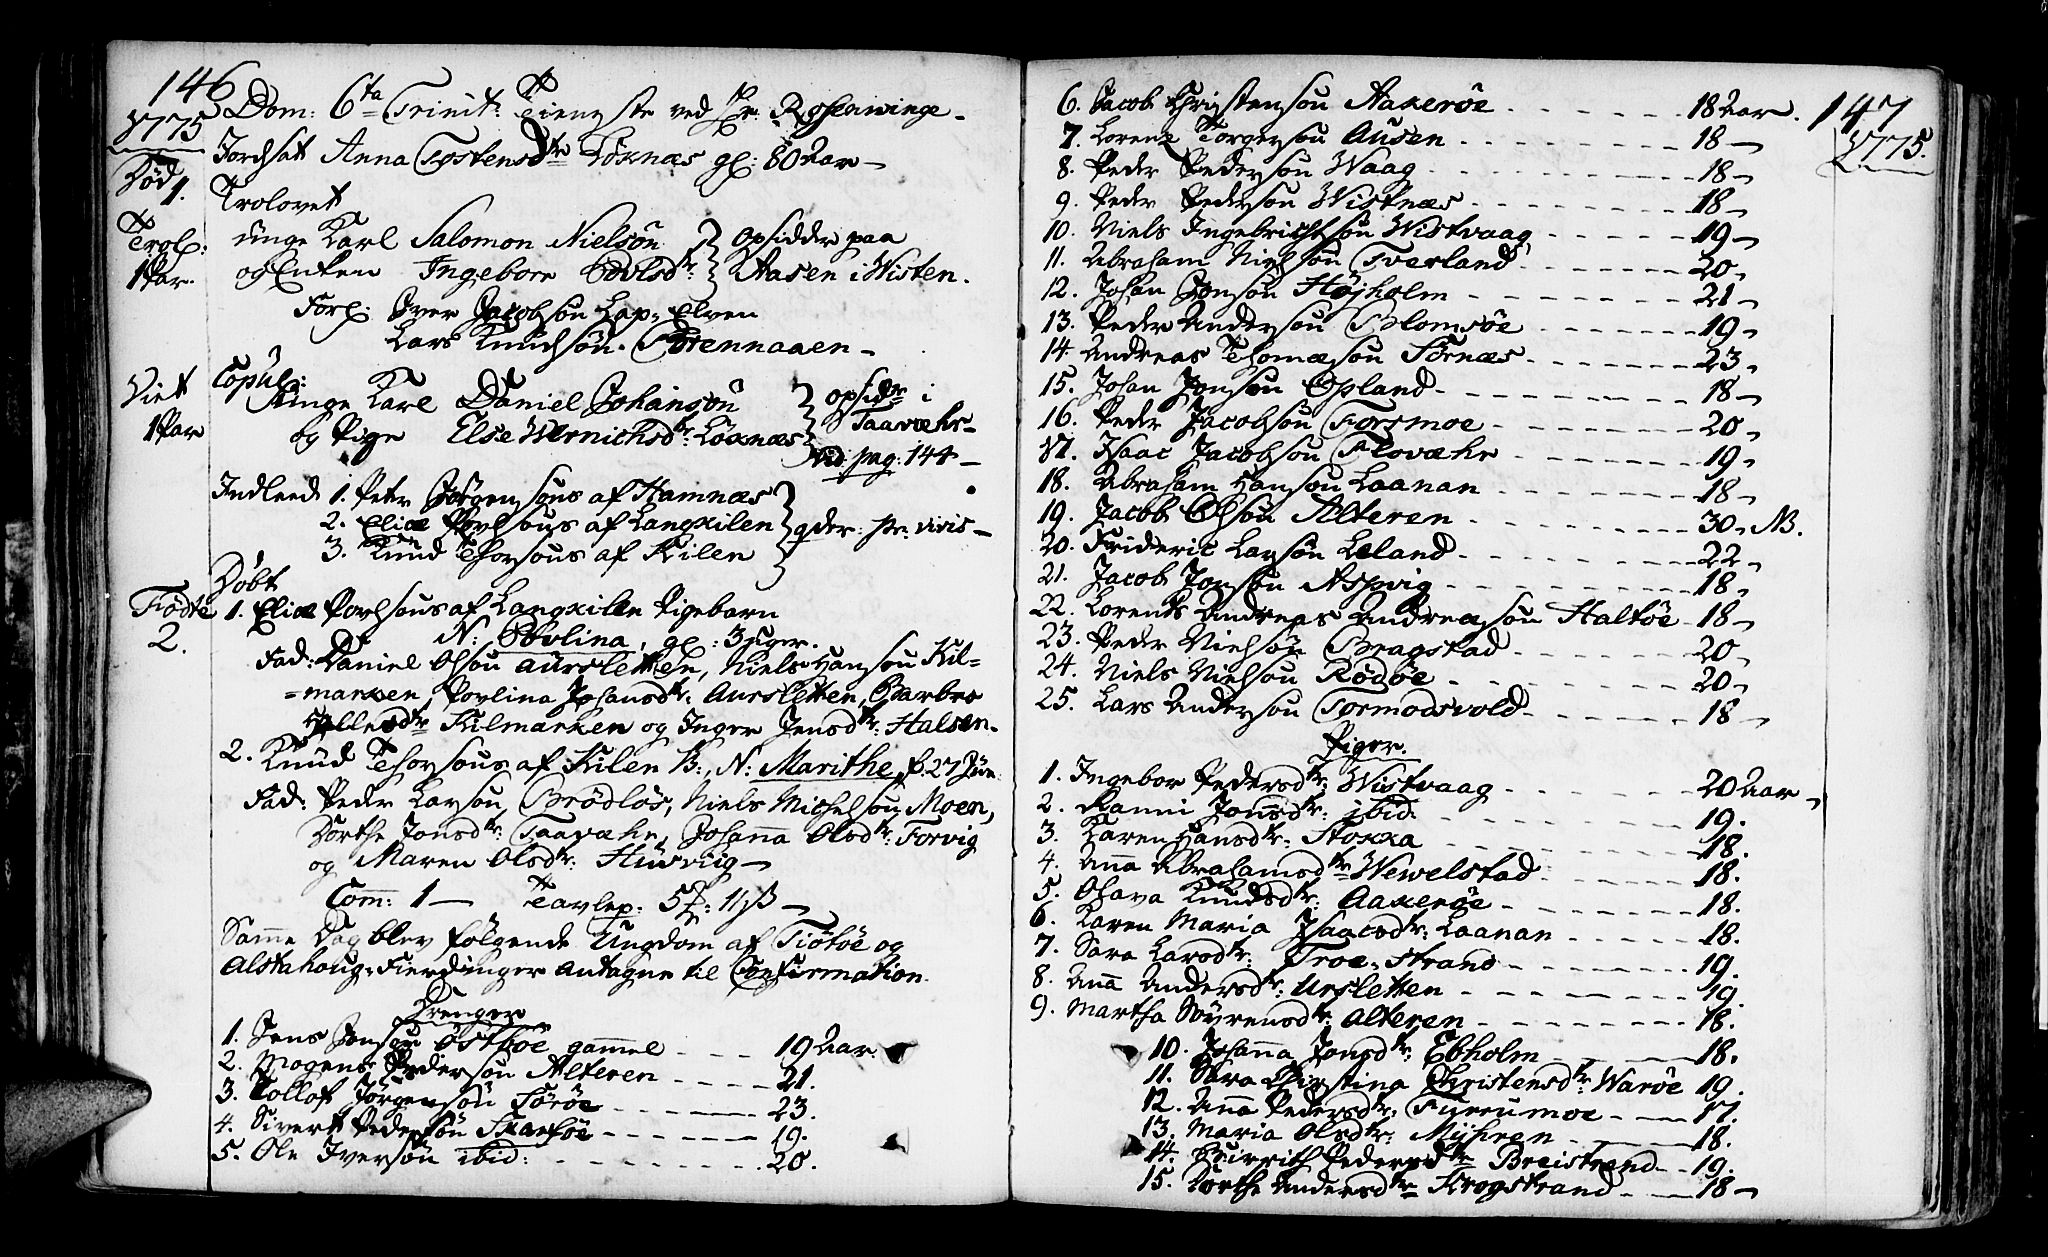 146
1775 Dom: 6ta Trinit: Tieneste ved Hr. Rosenvinge.
Jordsat Anna Tostensdtr Løxnæs gl: 80 Aar
Død 1.
Trolovet
Trol: 1 Par.
unge Karl Salomon Nielsøn } opsidder paa
og Enken Ingebore Povlsdtr: } Aasen i Wisten.
Forl: Iver Jacobsøn Lap-Elven
Lars Knudsøn Forennaaen
Viet 1 Par
Copul:
unge Karl Daniel Johansøn } opsidr i
og Pige Else Wernichsdtr: Løxnæs } Taavæhr
Vid: pag: 144
Indleed 1. Petr Jørgensøns af Hamnæs }
2. Eliæ Povlsøns af Langkilen } qder: pr: vivis
3. Knud Thorsøns af Kilen }
Døbt
Fødte 2.
1. Eliæ Povlsøns af Langkilen Pigebarn
N: Povlina, gl: 3 uger.
Fad: Daniel Olsøn Aursletten, Niels Hansøn Kil=
=marken, Povlina Johansdtr: Aursletten, Barbro
Kilmarken og Inger Jensdtr: Halsen.
2. Knud Thorsøns af Kilen B:, N: Marithe, f. 27 Jun:
Fad: Peder Larsøn Brødløs, Niels Michelsøn Moen,
Dorthe Jonsdtr: Taavæhr, Johanna Olsdtr: Forvig
og Maren Olsdtr: Husviig
Com: 1 — Tavlep: 5 : 11 ß
Samme Dag blev følgende Ungdom af Tiøtøe og
Alstahoug-Fierdinger antagne til Confirmation.
Drenger
1. Jens Jonsøn Østbøe gammel 19 Aar.
2. Mogens Pedersøn Alteren 21.
3. Tollof Jørgensøn Sørøe 23.
4. Sivert Pedersøn Skarsøe 19.
5. Ole Iversøn ibid: 20.
147
1775.
6. Jacob Christensøn Aakerøe 18 Aar.
7. Lorenz Torgersøn Ausen 18
8. Peder Pedersøn Waag 18
9. Peder Pedersøn Wistnæs 18
10. Niels Ingebrichtsøn Wistvaag 19
11. Abraham Nielsøn Tverland 20
12. Johan Jonsøn Højholm 21
13. Peder Andersøn Blomsøe 19
14. Andreas Thomæsøn Sørnæs 23
15. Johan Jonsøn Opland 18
16. Peder Jacobsøn Forsmoe 20
17. Isaac Jacobsøn Flovæhr 19
18. Abraham Hansøn Laanan 18
19. Jacob Olsøn Alteren 30 NB.
20. Frideric Larsøn Leland 22
21. Jacob Jonsøn Aspvig 18
22. Lorents Andreas Andreasøn Haltøe 18
23. Peder Nielsøn Bragstad 20
24. Niels Nielsøn Rødøe 20
25. Lars Andersøn Tormodsvold 18
Piger.
1. Ingebor Pedersdtr: Wistvaag 20 Aar
2. Ranni Jonsdtr: ibid. 19.
3. Karen Hansdtr: Stokka 18.
4. Anna Abrahamsdtr Wewelstad 18.
5. Olava Knudsdtr: Aakerøe 18.
6. Karen Maria Isaacsdtr: Laanan 18.
7. Sara Larsdtr: Troe-Strand 19.
8. Anna Andersdtr: Ursletten 19.
9. Martha Søvrensdtr: Alteren 18.
10. Johanna Jonsdtr: Ebholm 18.
11. Sara Christina Christensdtr: Warøe 19.
12. Anna Pedersdtr: Fyrrumoe 17.
13. Maria Olsdtr: Myhren 18.
14. Birrith Pedersdtr Breistrand 19.
15. Dorthe Andersdtr Krogstrand 18